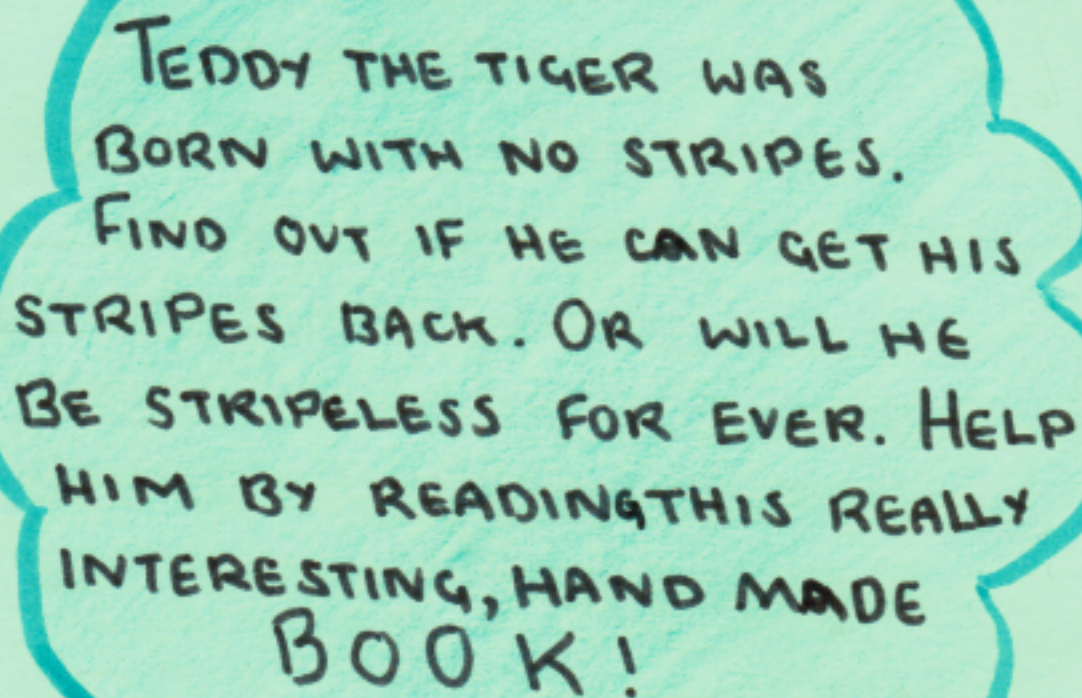 TEDDY THE TIGER WAS
BORN WITH NO STRIPES.
FIND OUT IF HE CAN GET HIS
STRIPES BACK. OR WILL HE
BE STRIPELESS FOR EVER. HELP
HIM BY READINGTHIS REALLY
INTERESTING, HAND MADE
BOOK!